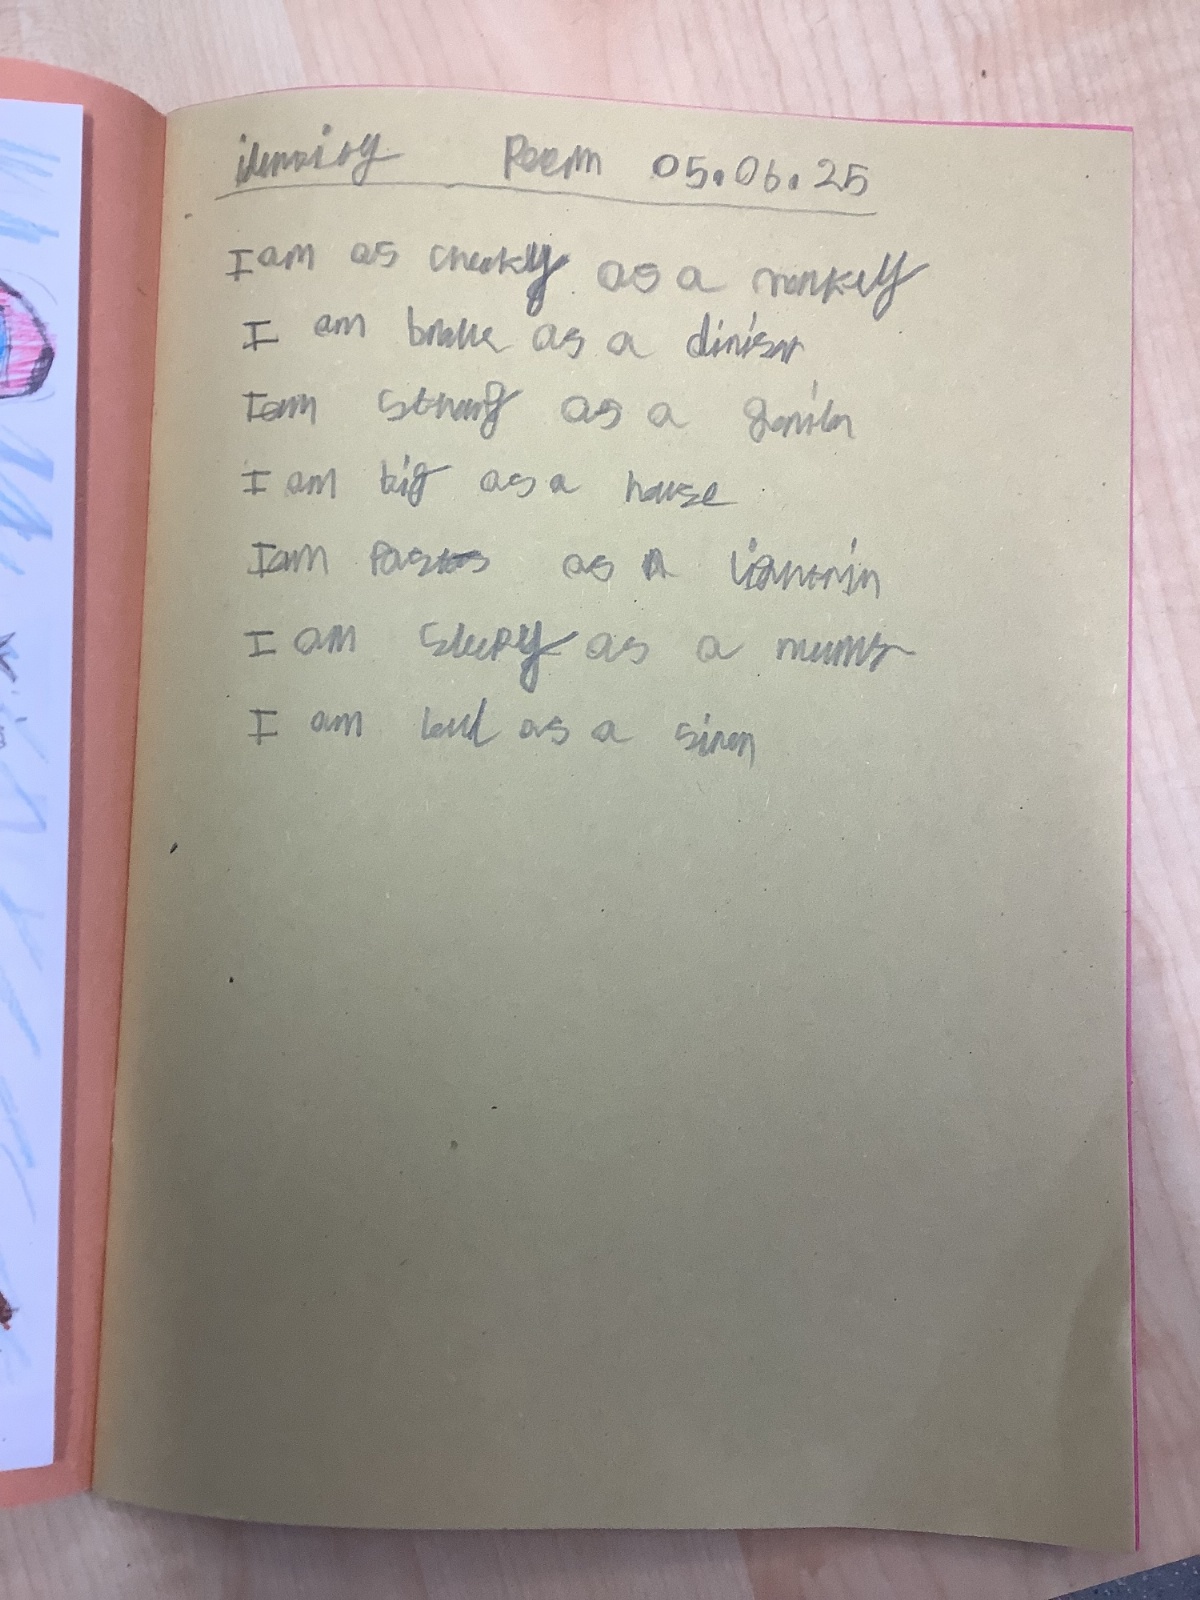 Poem 05.06.25
I am as cheeky as a monkey
I am brave as a dinisor
I am strong as a gorila
I am big as a house
I am as a
I am sleepy as a
I am loud as a siren